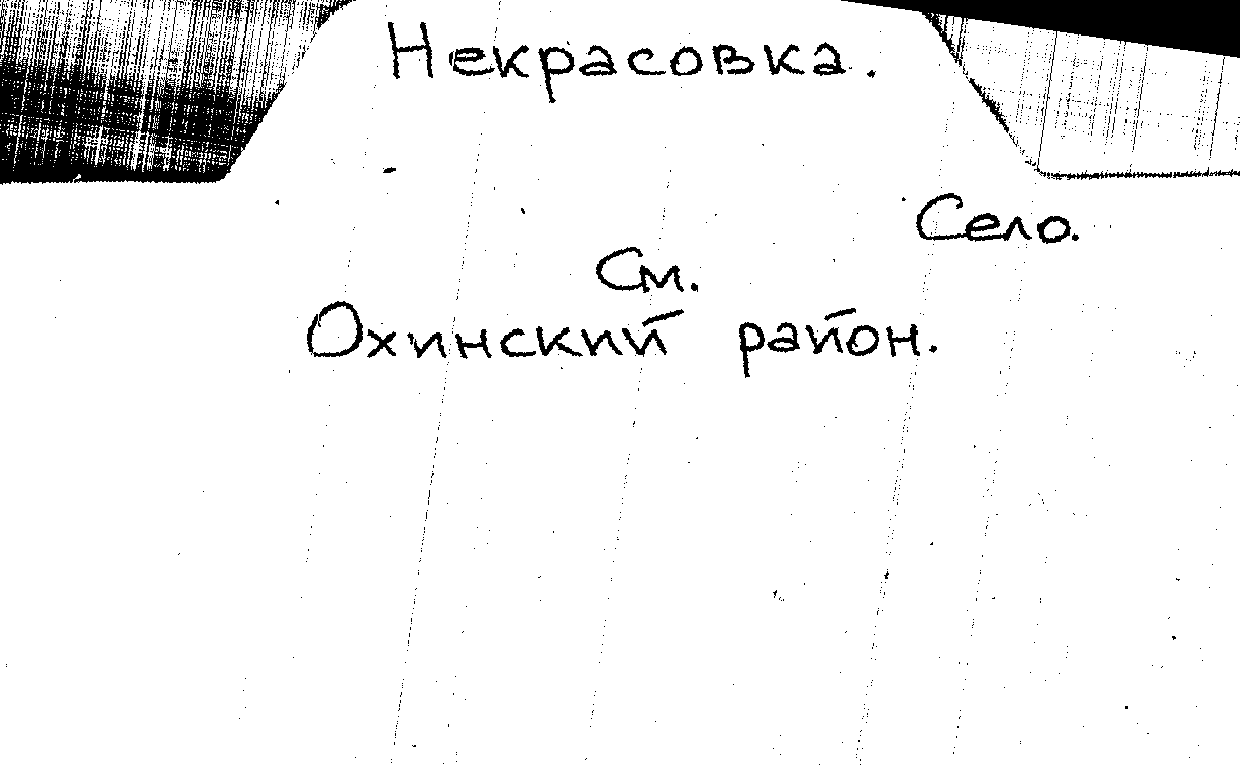 Некрасовка.
Село.
См.
Охинский район.